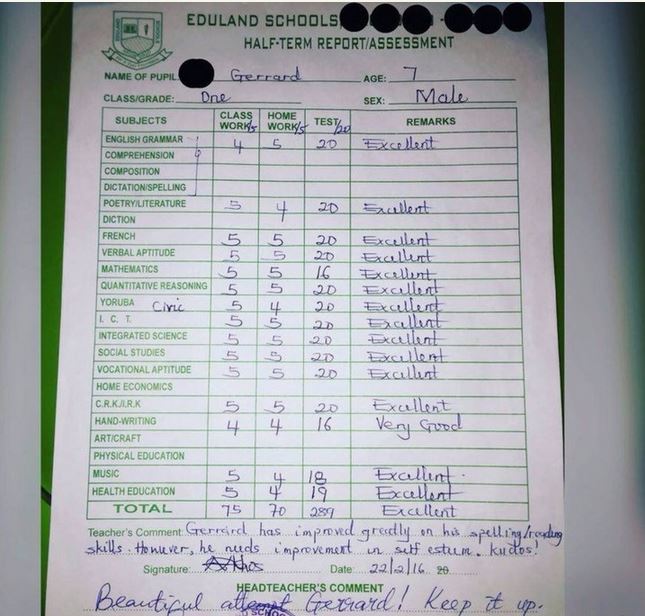 EDULAND SCHOOLS
HALF-TERM REPORT/ASSESSMENT
NAME OF PUPIL Gerrard AGE: 7
CLASS/GRADE: One SEX: Male
SUBJECTS CLASS WORK/5 HOME WORK/5 TEST/20 REMARKS
ENGLISH GRAMMAR 4 5 20 Excellent
COMPREHENSION
COMPOSITION
DICTATION/SPELLING
POETRY/LITERATURE 5 4 20 Excellent
DICTION
FRENCH 5 5 20 Excellent
VERBAL APTITUDE 5 5 20 Excellent
MATHEMATICS 5 5 16 Excellent
QUANTITATIVE REASONING 5 5 20 Excellent
YORUBA Civic 5 4 20 Excellent
I. C. T. 5 5 20 Excellent
INTEGRATED SCIENCE 5 5 20 Excellent
SOCIAL STUDIES 5 5 20 Excellent
VOCATIONAL APTITUDE 5 5 20 Excellent
HOME ECONOMICS
C.R.K/I.R.K 5 5 20 Excellent
HAND-WRITING 4 4 16 Very Good
ART/CRAFT
PHYSICAL EDUCATION
MUSIC 5 4 18 Excellent
HEALTH EDUCATION 5 4 19 Excellent
TOTAL 75 70 289 Excellent
Teacher's Comment: Gerrard has improved greatly on his spelling/reading
skills. However, he needs improvement in self estum. kudos!
Signature: Date: 22/2/16 20
HEADTEACHER'S COMMENT
Beautiful attempt Gerrard! Keep it up.